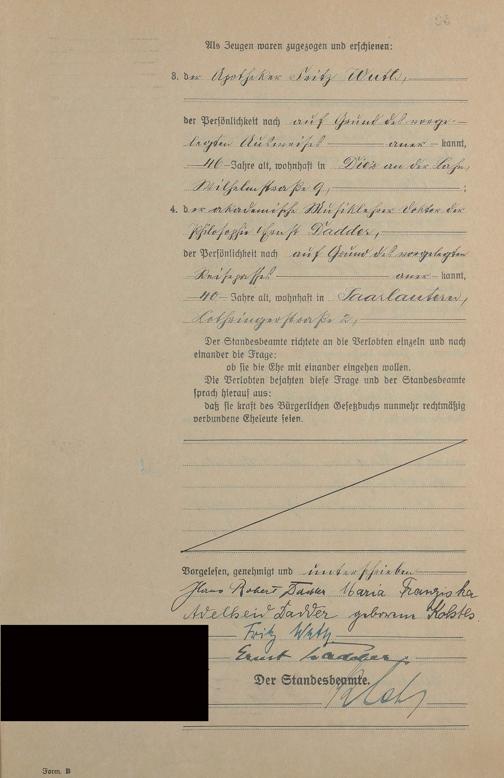 Als Zeugen waren zugezogen und erschienen:
3. der Apotheker Fritz Wuth,
der Persönlichkeit nach auf Grund des vorge-
legten Ausweises aner kannt,
40 Jahre alt, wohnhaft in Diez an der Lahn,
Wilhelmstraße 9, ;
4. der akademische Musiklehrer Doktor der
Philosophie Ernst Dadder,
der Persönlichkeit nach auf Grund des vorgelegten
Reisepasses aner kannt,
40 Jahre alt, wohnhaft in Saarlautern,
Lothringerstraße 2,
Der Standesbeamte richtete an die Verlobten einzeln und nach
einander die Frage:
ob sie die Ehe mit einander eingehen wollen.
Die Verlobten bejahten diese Frage und der Standesbeamte
sprach hierauf aus:
daß sie kraft des Bürgerlichen Gesetzbuchs nunmehr rechtmäßig
verbundene Eheleute seien.
Vorgelesen, genehmigt und unterschrieben
Hans Robert Dadder Maria Franziska
Adelheid Dadder geborene
Fritz Wuth
Ernst Dadder
Der Standesbeamte.
Form. B